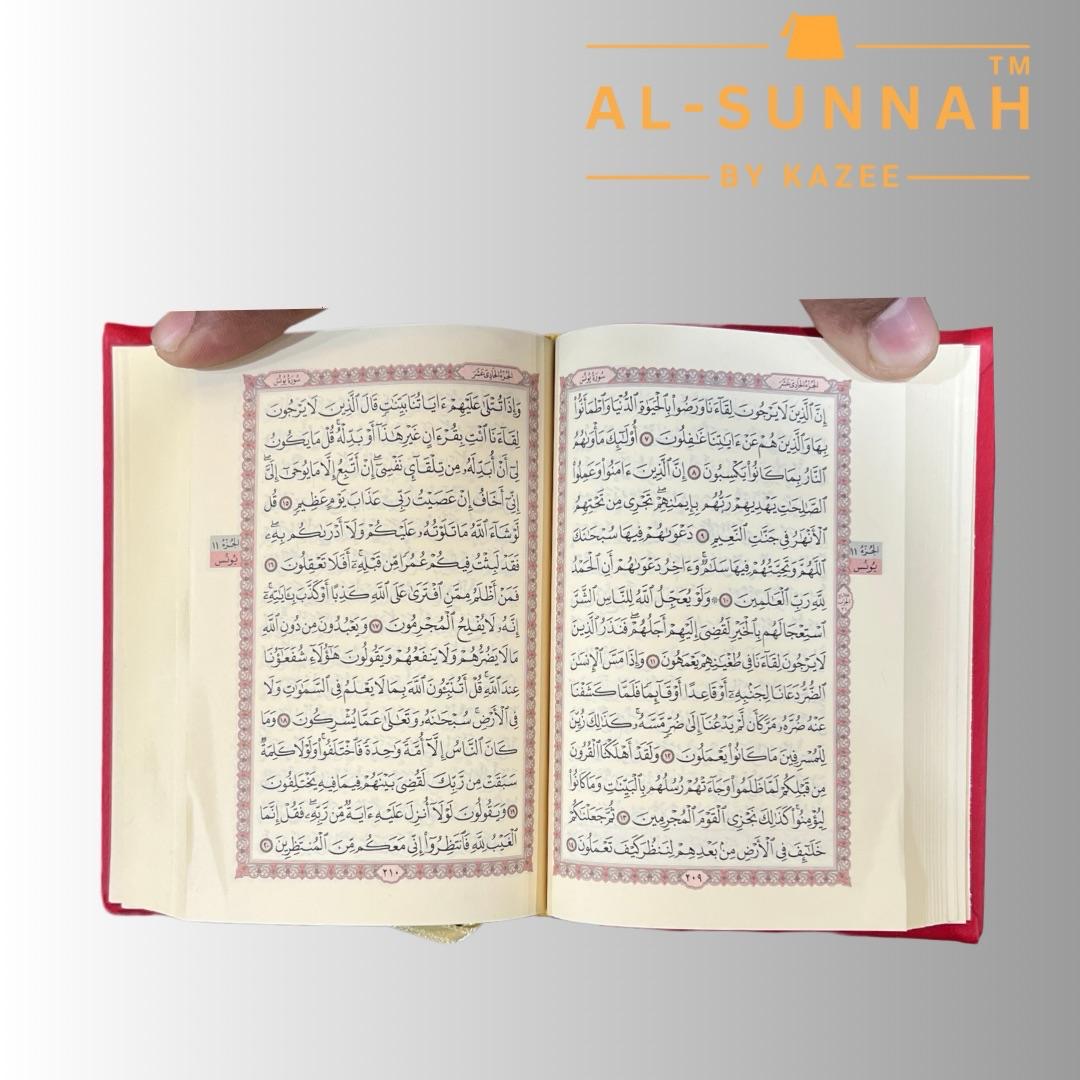 AL-SUNNAH
TM
BY KAZEE
سُورَةُ يُونُسَ
الجُزْءُ الحَادِي عَشَرَ
إِنَّ ٱلَّذِينَ لَا يَرْجُونَ لِقَآءَنَا وَرَضُوا۟ بِٱلْحَيَوٰةِ ٱلدُّنْيَا وَٱطْمَأَنُّوا۟
بِهَا وَٱلَّذِينَ هُمْ عَنْ ءَايَٰتِنَا غَٰفِلُونَ ٧ أُو۟لَٰٓئِكَ مَأْوَىٰهُمُ
ٱلنَّارُ بِمَا كَانُوا۟ يَكْسِبُونَ ٨ إِنَّ ٱلَّذِينَ ءَامَنُوا۟ وَعَمِلُوا۟
ٱلصَّٰلِحَٰتِ يَهْدِيهِمْ رَبُّهُم بِإِيمَٰنِهِمْۖ تَجْرِى مِن تَحْتِهِمُ
ٱلْأَنْهَٰرُ فِى جَنَّٰتِ ٱلنَّعِيمِ ٩ دَعْوَىٰهُمْ فِيهَا سُبْحَٰنَكَ
ٱللَّهُمَّ وَتَحِيَّتُهُمْ فِيهَا سَلَٰمٌۚ وَءَاخِرُ دَعْوَىٰهُمْ أَنِ ٱلْحَمْدُ
لِلَّهِ رَبِّ ٱلْعَٰلَمِينَ ١٠ ۞ وَلَوْ يُعَجِّلُ ٱللَّهُ لِلنَّاسِ ٱلشَّرَّ
ٱسْتِعْجَالَهُم بِٱلْخَيْرِ لَقُضِىَ إِلَيْهِمْ أَجَلُهُمْۖ فَنَذَرُ ٱلَّذِينَ
لَا يَرْجُونَ لِقَآءَنَا فِى طُغْيَٰنِهِمْ يَعْمَهُونَ ١١ وَإِذَا مَسَّ ٱلْإِنسَٰنَ
ٱلضُّرُّ دَعَانَا لِجَنۢبِهِۦٓ أَوْ قَاعِدًا أَوْ قَآئِمًا فَلَمَّا كَشَفْنَا
عَنْهُ ضُرَّهُۥ مَرَّ كَأَن لَّمْ يَدْعُنَآ إِلَىٰ ضُرٍّ مَّسَّهُۥۚ كَذَٰلِكَ زُيِّنَ
لِلْمُسْرِفِينَ مَا كَانُوا۟ يَعْمَلُونَ ١٢ وَلَقَدْ أَهْلَكْنَا ٱلْقُرُونَ
مِن قَبْلِكُمْ لَمَّا ظَلَمُوا۟ وَجَآءَتْهُمْ رُسُلُهُم بِٱلْبَيِّنَٰتِ وَمَا كَانُوا۟
لِيُؤْمِنُوا۟ۚ كَذَٰلِكَ نَجْزِى ٱلْقَوْمَ ٱلْمُجْرِمِينَ ١٣ ثُمَّ جَعَلْنَٰكُمْ
خَلَٰٓئِفَ فِى ٱلْأَرْضِ مِنۢ بَعْدِهِمْ لِنَنظُرَ كَيْفَ تَعْمَلُونَ ١٤
٢٠٩
الجُزْءُ ١١
يُونُس
الجُزْءُ الحَادِي عَشَرَ
سُورَةُ يُونُسَ
وَإِذَا تُتْلَىٰ عَلَيْهِمْ ءَايَاتُنَا بَيِّنَٰتٍ قَالَ ٱلَّذِينَ لَا يَرْجُونَ
لِقَآءَنَا ٱئْتِ بِقُرْءَانٍ غَيْرِ هَٰذَآ أَوْ بَدِّلْهُۚ قُلْ مَا يَكُونُ
لِىٓ أَنْ أُبَدِّلَهُۥ مِن تِلْقَآئِ نَفْسِىٓۖ إِنْ أَتَّبِعُ إِلَّا مَا يُوحَىٰٓ إِلَىَّۖ
إِنِّىٓ أَخَافُ إِنْ عَصَيْتُ رَبِّى عَذَابَ يَوْمٍ عَظِيمٍ ١٥ قُل
لَّوْ شَآءَ ٱللَّهُ مَا تَلَوْتُهُۥ عَلَيْكُمْ وَلَآ أَدْرَىٰكُم بِهِۦۖ
فَقَدْ لَبِثْتُ فِيكُمْ عُمُرًا مِّن قَبْلِهِۦٓۚ أَفَلَا تَعْقِلُونَ ١٦
فَمَنْ أَظْلَمُ مِمَّنِ ٱفْتَرَىٰ عَلَى ٱللَّهِ كَذِبًا أَوْ كَذَّبَ بِـَٔايَٰتِهِۦٓۚ
إِنَّهُۥ لَا يُفْلِحُ ٱلْمُجْرِمُونَ ١٧ وَيَعْبُدُونَ مِن دُونِ ٱللَّهِ
مَا لَا يَضُرُّهُمْ وَلَا يَنفَعُهُمْ وَيَقُولُونَ هَٰٓؤُلَآءِ شُفَعَٰٓؤُنَا
عِندَ ٱللَّهِۚ قُلْ أَتُنَبِّـُٔونَ ٱللَّهَ بِمَا لَا يَعْلَمُ فِى ٱلسَّمَٰوَٰتِ وَلَا
فِى ٱلْأَرْضِۚ سُبْحَٰنَهُۥ وَتَعَٰلَىٰ عَمَّا يُشْرِكُونَ ١٨ وَمَا
كَانَ ٱلنَّاسُ إِلَّآ أُمَّةً وَٰحِدَةً فَٱخْتَلَفُوا۟ۚ وَلَوْلَا كَلِمَةٌ
سَبَقَتْ مِن رَّبِّكَ لَقُضِىَ بَيْنَهُمْ فِيمَا فِيهِ يَخْتَلِفُونَ
١٩ وَيَقُولُونَ لَوْلَآ أُنزِلَ عَلَيْهِ ءَايَةٌ مِّن رَّبِّهِۦۖ فَقُلْ إِنَّمَا
ٱلْغَيْبُ لِلَّهِ فَٱنتَظِرُوٓا۟ إِنِّى مَعَكُم مِّنَ ٱلْمُنتَظِرِينَ ٢٠
٢١٠
الجُزْءُ ١١
يُونُس